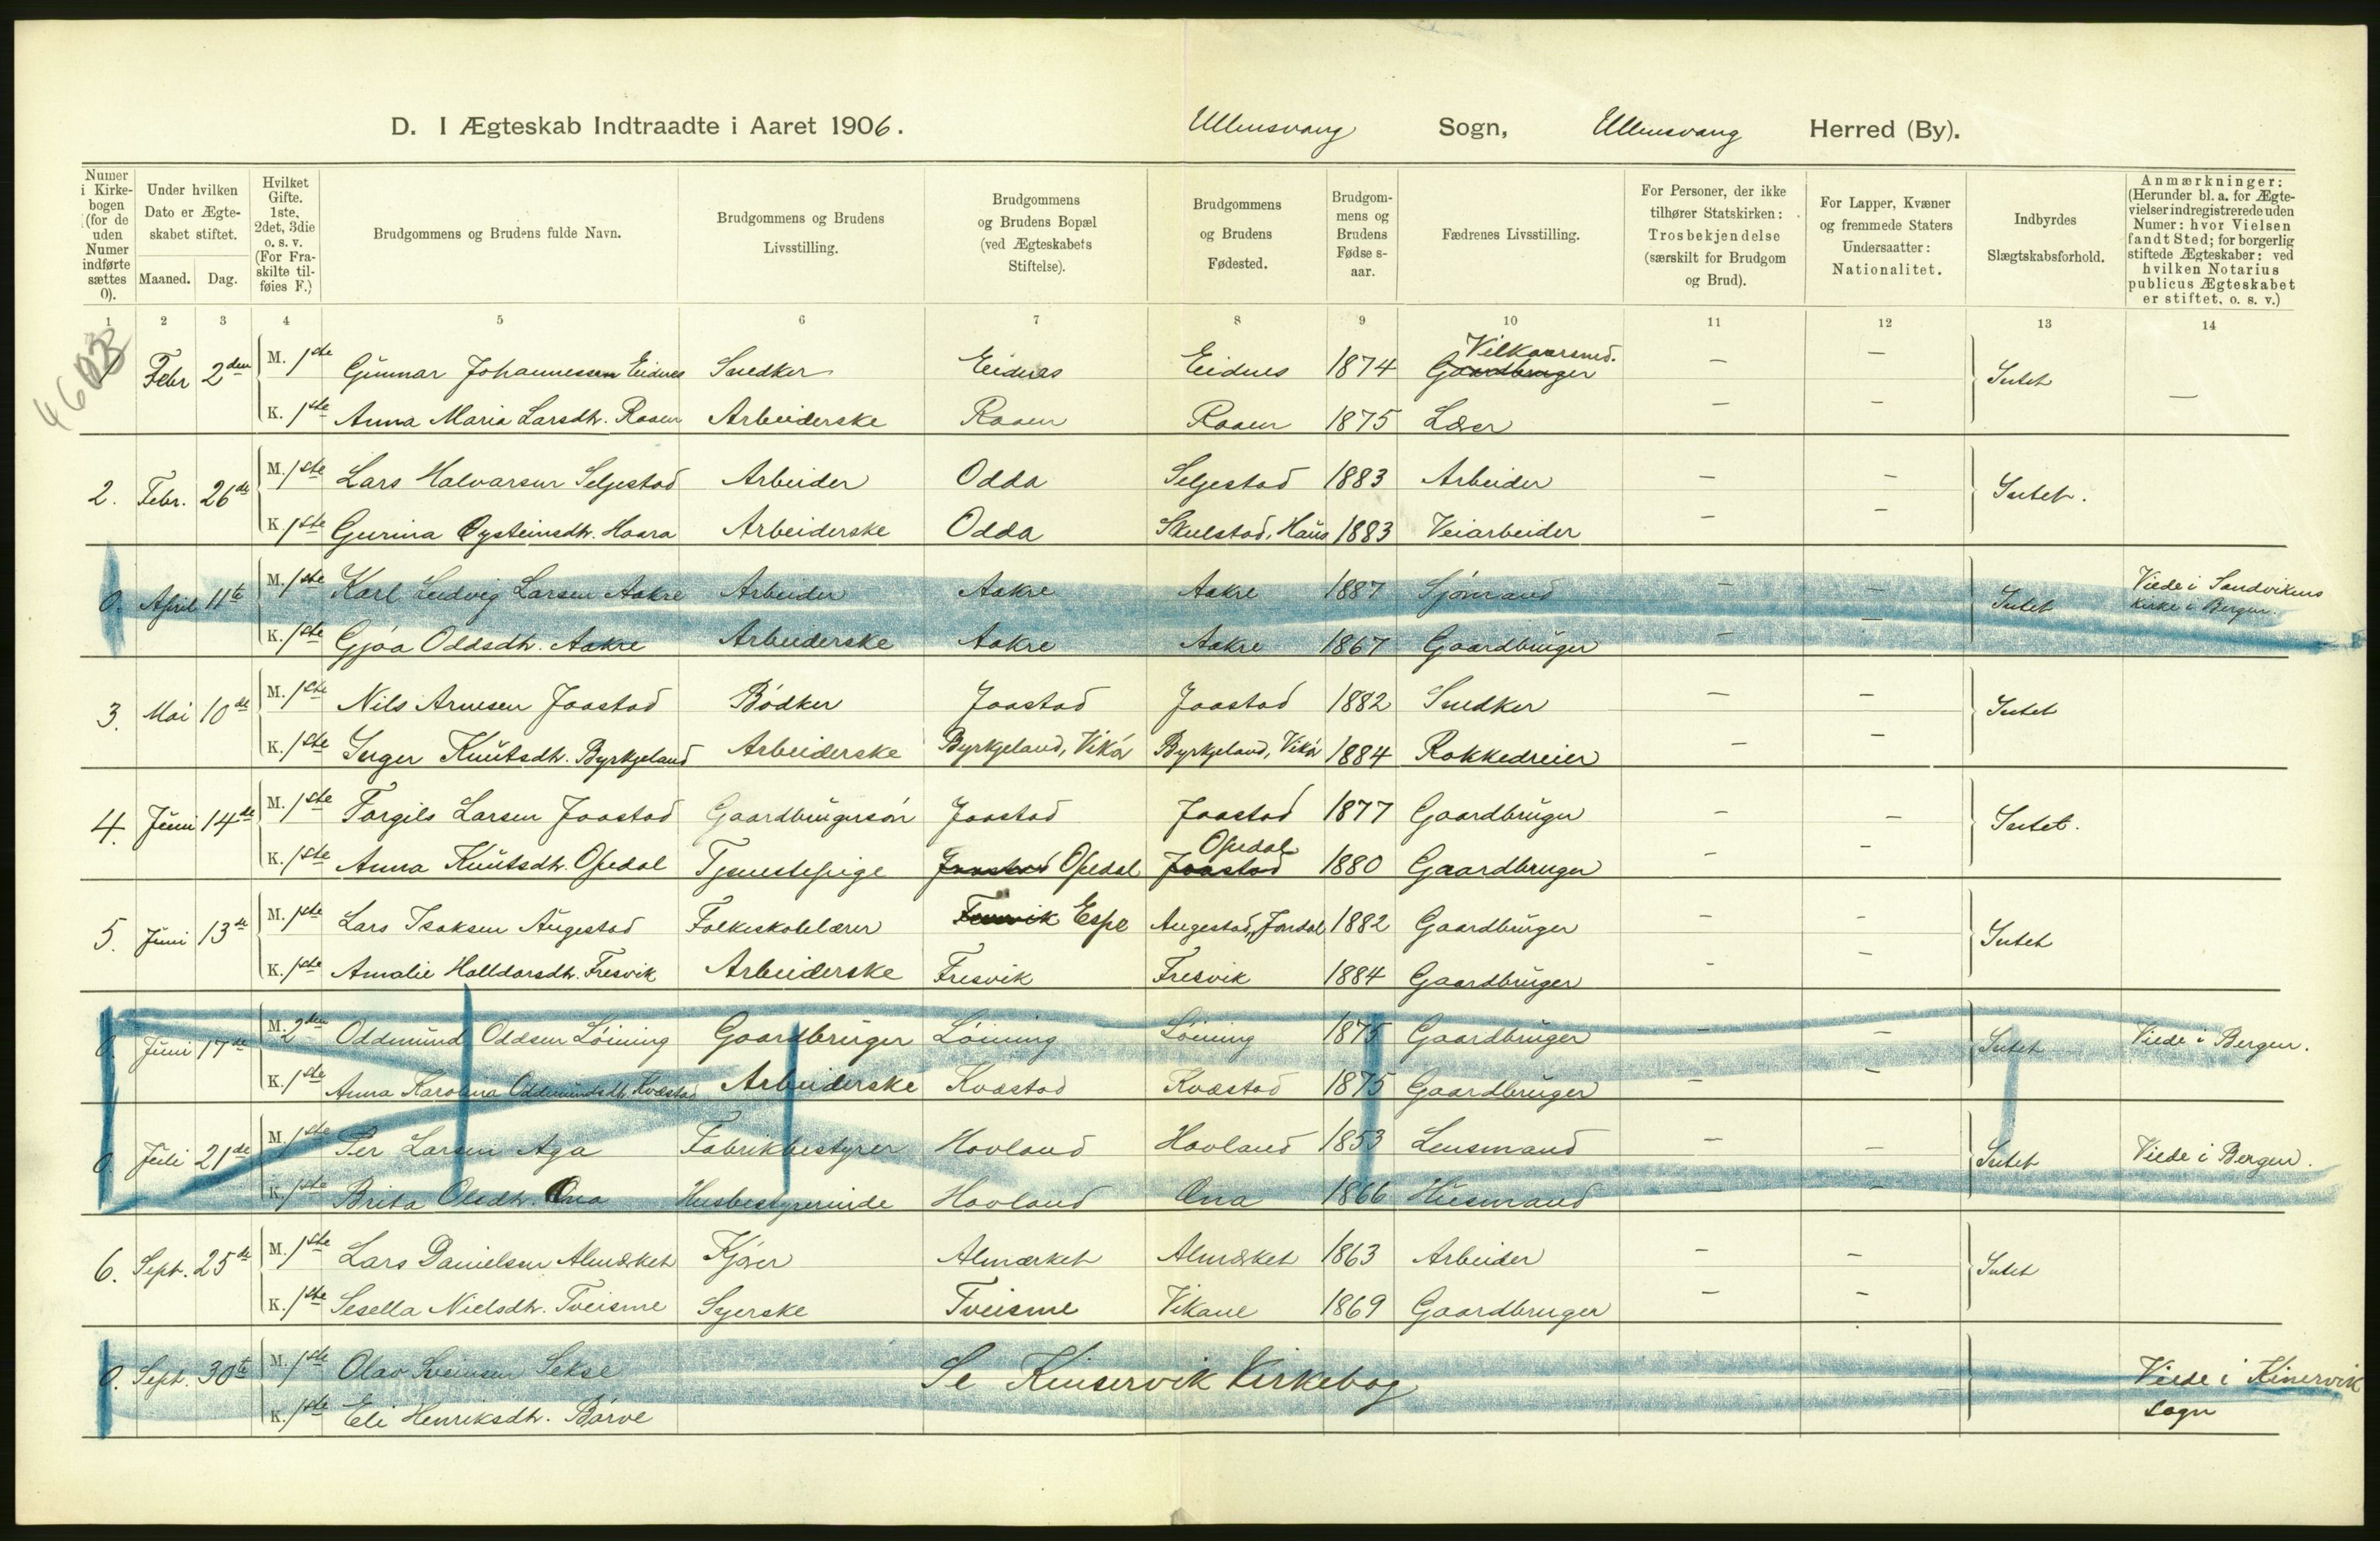 D. I Ægteskab Indtraadte i Aaret 1906. Ullensvang Sogn, Ullensvang Herred (By).
Numer i Kirkebogen (for de uden Numer indførte sættes 0).
Under hvilken Dato er Ægteskabet stiftet.
Maaned. Dag.
Hvilket Gifte. 1ste, 2det, 3die o. s. v. (For Fraskilte tilføies F.)
Brudgommens og Brudens fulde Navn.
Brudgommens og Brudens Livsstilling.
Brudgommens og Brudens Bopæl (ved Ægteskabets Stiftelse).
Brudgommens og Brudens Fødested.
Brudgommens og Brudens Fødselsaar.
Fædrenes Livsstilling.
For Personer, der ikke tilhører Statskirken: Trosbekjendelse (særskilt for Brudgom og Brud).
For Lapper, Kvæner og fremmede Staters Undersaatter: Nationalitet.
Indbyrdes Slægtskabsforhold.
Anmærkninger: (Herunder bl. a. for Ægtevielser indregistrerede uden Numer: hvor Vielsen fandt Sted; for borgerlig stiftede Ægteskaber: ved hvilken Notarius publicus Ægteskabet er stiftet, o. s. v.)
1 2 3 4 5 6 7 8 9 10 11 12 13 14
Vilkaarsmd.
Febr 2den M. 1ste Gunnar Johannessen Eidnes Snedker Eidnes Eidnes 1874 Gaardbruger — — Intet
K. 1ste Anna Maria Larsdtr. Raaen Arbeiderske Raaen Raaen 1875 Læer — — —
2. Febr. 26de M. 1ste Lars Halvarsen Seljestad Arbeider Odda Seljestad 1883 Arbeider — — Intet.
K. 1ste Gurina Øysteinsdtr. Haara Arbeiderske Odda Skulstad, Haus 1883 Veiarbeider — —
0. April 11te M. 1ste Karl Ludvig Larsen Aakre Arbeider Aakre Aakre 1887 Sjømand — — Intet Viede i Sandvikens
kirke i Bergen.
K. 1ste Gjøa Oddsdtr. Aakre Arbeiderske Aakre Aakre 1867 Gaardbruger — —
3. Mai 10de M. 1ste Nils Arnesen Jaastad Bødker Jaastad Jaastad 1882 Snedker — — Intet
K. 1ste Inger Knutsdtr. Byrkjeland Arbeiderske Byrkjeland, Vikør Byrkjeland, Vikør 1884 Rokkedreier — —
4. Juni 14de M. 1ste Torgils Larsen Jaastad Gaardbrugersøn Jaastad Jaastad 1877 Gaardbruger — — Intet.
Opedal
K. 1ste Anna Knutsdtr. Opedal Tjenestepige Jaastad Opedal Jaastad 1880 Gaardbruger — —
5. Juni 13de M. 1ste Lars Isaksen Augestad Folkeskolelærer Espe Augestad, Jondal 1882 Gaardbruger — — Intet
K. 1ste Amalie Halldorsdtr. Fresvik Arbeiderske Fresvik Fresvik 1884 Gaardbruger — —
0. Juni 17de M. 2den Oddmund Oddsen Løining Gaardbruger Løining Løining 1875 Gaardbruger — — Intet Viede i Bergen.
K. 1ste Anna Karolina Oddmundsdtr. Kvæstad Arbeiderske Kvæstad Kvæstad 1875 Gaardbruger — —
0. Juli 21de M. 1ste Per Larsen Aga Fabrikbestyrer Hovland Hovland 1853 Lensmand — — Intet Viede i Bergen.
K. 1ste Brita Olsdtr. Husbestyrerinde Hovland 1866 Husmand — —
6. Sept. 25de M. 1ste Lars Danielsen Almerket Kjører Almerket Almerket 1863 Arbeider — — Intet
K. 1ste Sesella Nielsdtr. Tveisme Syerske Tveisme Vikane 1869 Gaardbruger — —
0. Sept. 30te M. 1ste Olav Sveinsen Sekse Se Kinservik Kirkebog Viede i Kinservik
sogn
K. 1ste Eli Henriksdtr. Børve